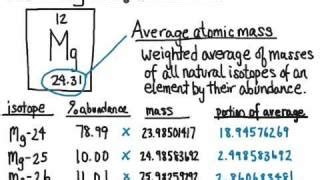 12
Mg
24.31
Average atomic mass
weighted average of masses
of all natural isotopes of an
element by their abundance.
isotope % abundance mass potion of average
Mg-24 78.99 x 23.98501417 18.94576269
Mg-25 10.00 x 24.98583692 2.498583692
Mg-26 11.01 x 25.98259292 2.860683481